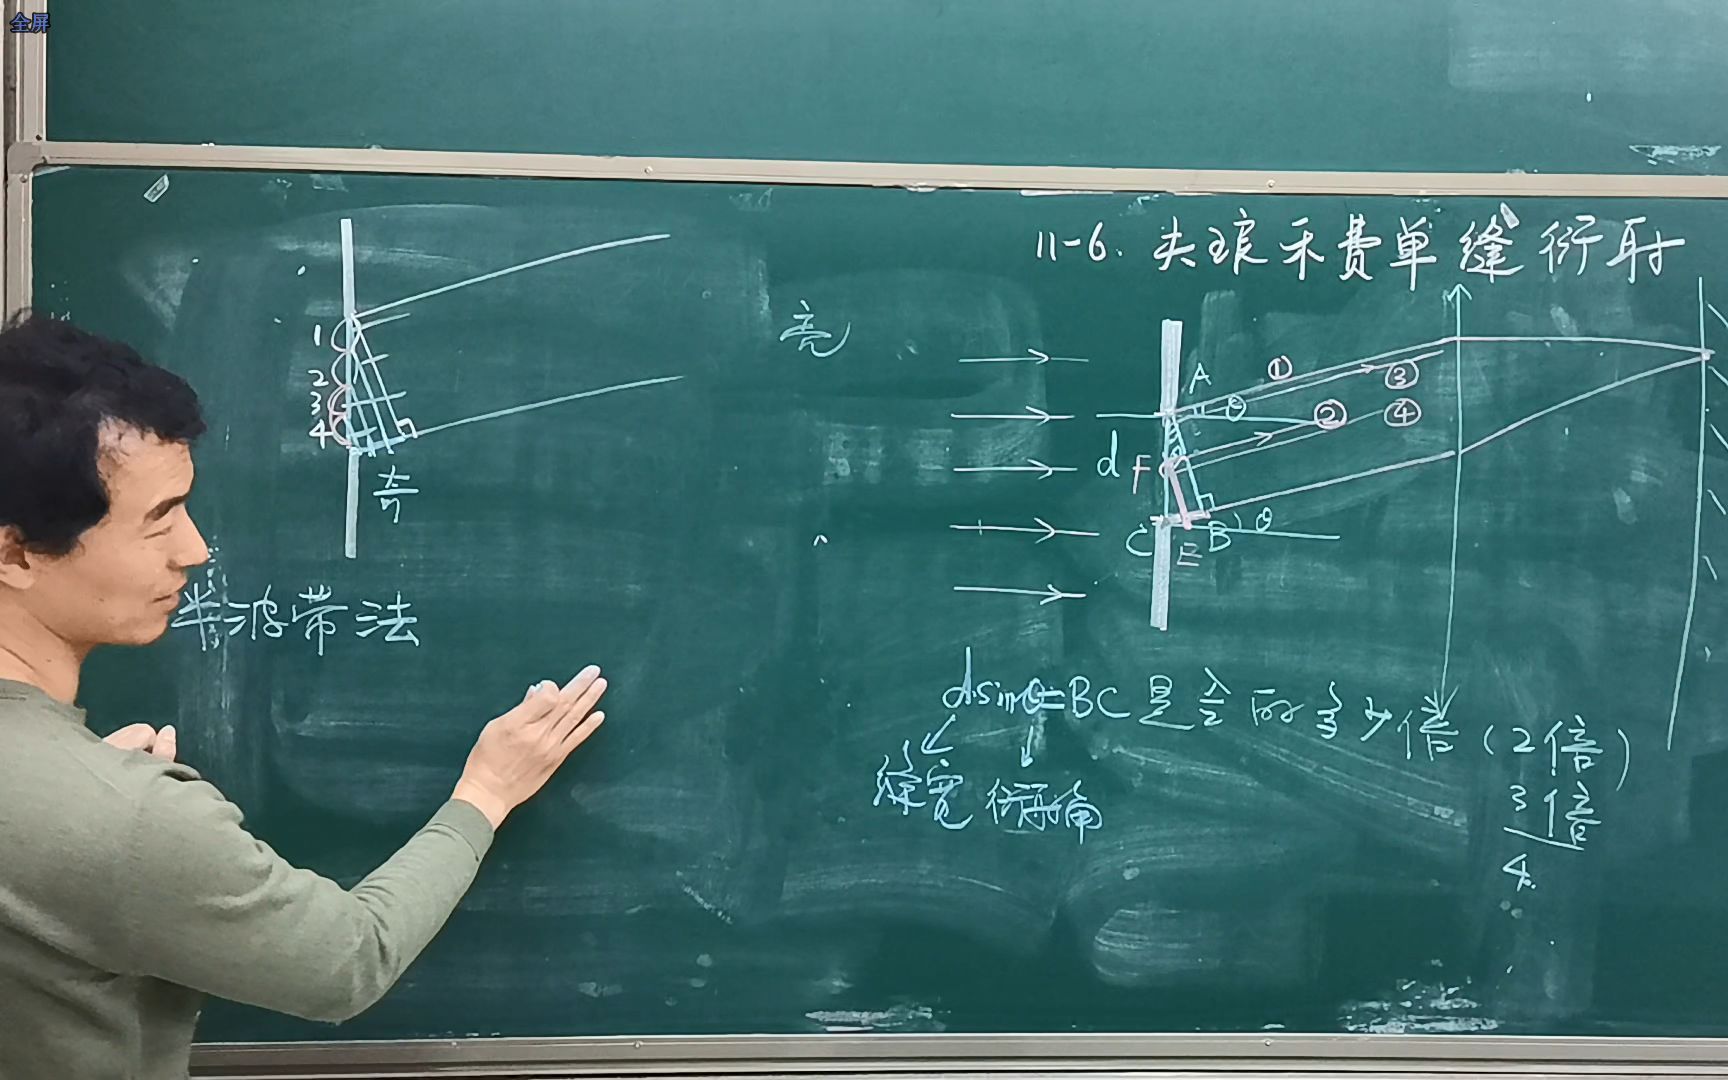 全屏
11-6. 夫琅禾费单缝衍射
亮
1
2
3
4
奇
半波带法
A
①
③
θ
②
④
d
F
C
E
B
θ
dsinθ=BC 是 λ/2 的多少倍 (2倍)
缝宽 衍射角
3倍
4.